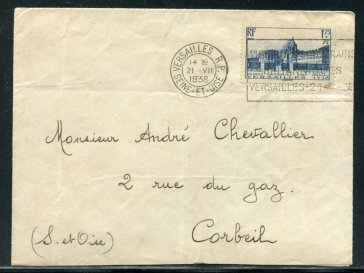 VERSAILLES R.P.
14 H
21 -VII
1938
SEINE-ET-OISE
RF
VERSAILLES-21
Monsieur André Chevallier
2 rue du gaz.
(S. et Oise) Corbeil